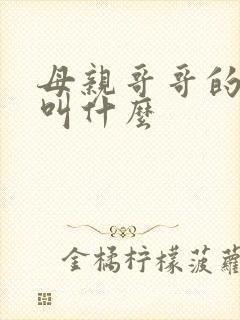 母親哥哥的
叫什麼
金橘柠檬菠蘿